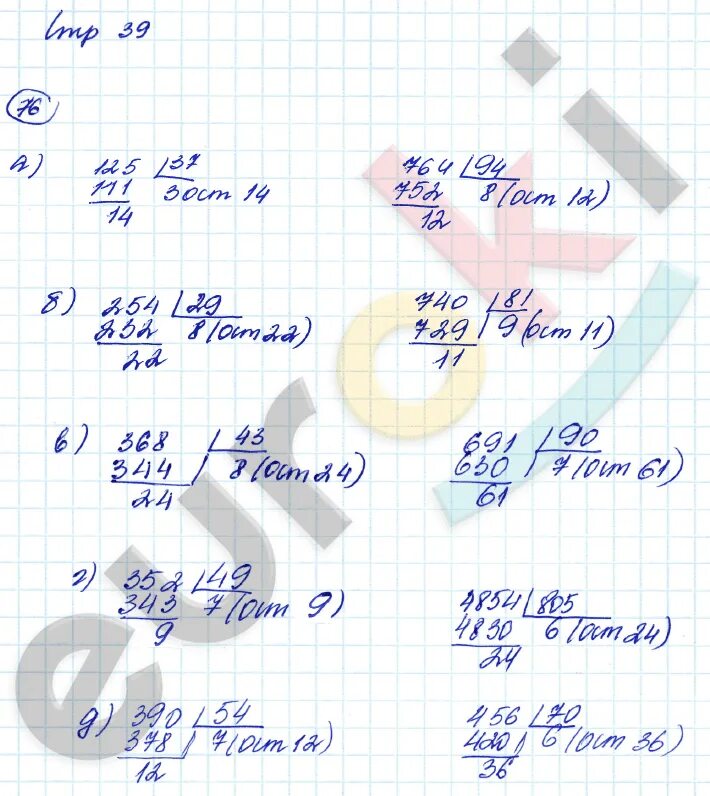 Стр 39
76
а) 125 | 37 764 | 94
111 3 ост 14 752 8 (ост 12)
14 12
б) 254 | 29 740 | 81
232 8 (ост 22) 729 9 (ост 11)
22 11
в) 368 | 43 691 | 90
344 8 (ост 24) 630 7 (ост 61)
24 61
г) 352 | 49 4854 | 805
343 7 (ост 9) 4830 6 (ост 24)
9 24
д) 390 | 54 456 | 70
378 7 (ост 12) 420 6 (ост 36)
12 36
euroki